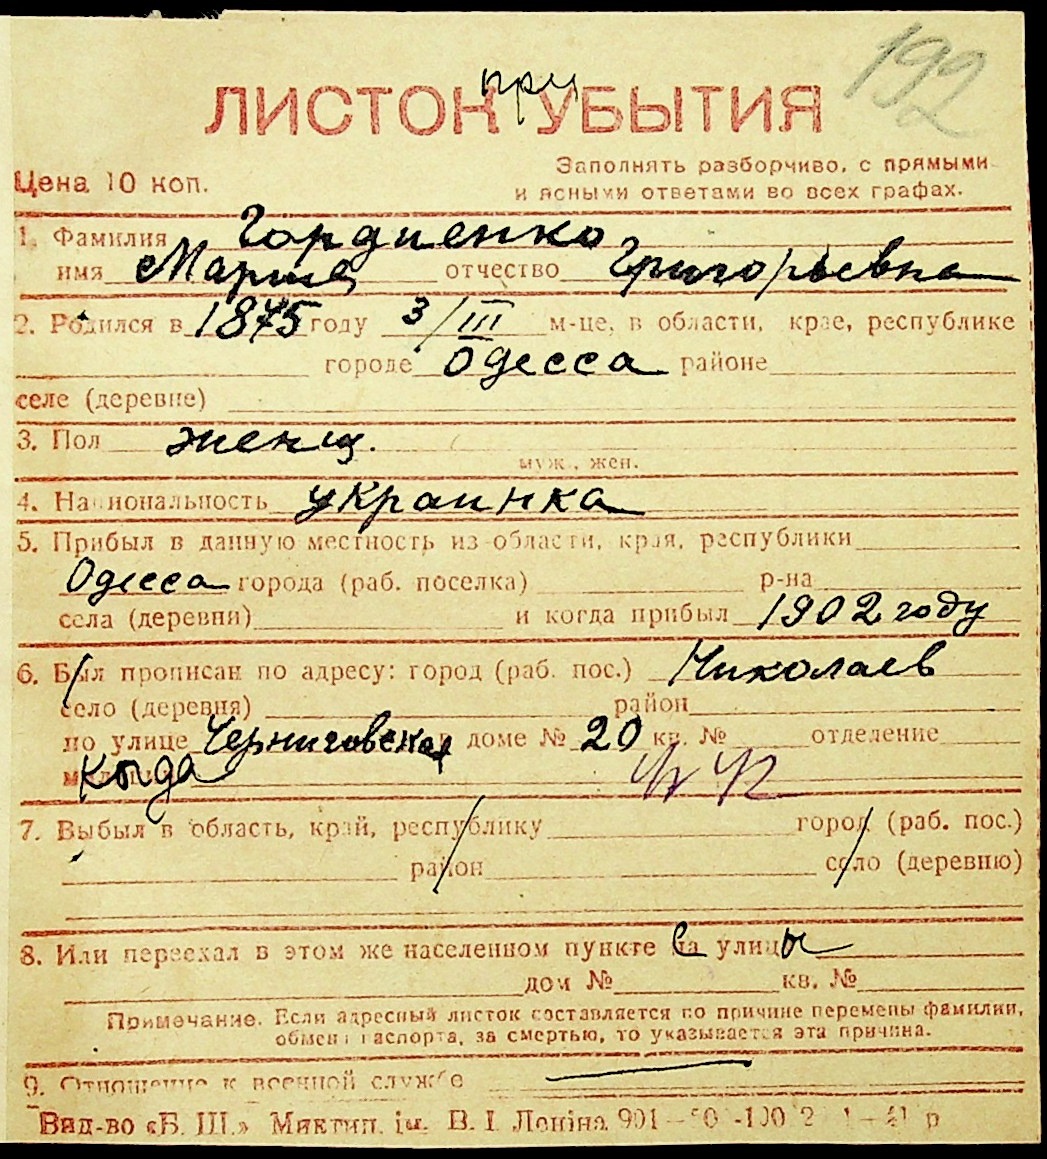 192
при
ЛИСТОК УБЫТИЯ
Цена 10 коп.
Заполнять разборчиво, с прямыми
и ясными ответами во всех графах.
1. Фамилия Гордиенко
имя Мария отчество Григорьевна
2. Родился в 1875 году 3/III м-це, в области, крае, республике
городе Одесса районе
селе (деревне)
3. Пол женщ.
муж., жен.
4. Национальность украинка
5. Прибыл в данную местность из области, края, республики
Одесса города (раб. поселка) р-на
села (деревни) и когда прибыл 1902 году
6. Был прописан по адресу: город (раб. пос.) Николаев
село (деревня) район
по улице Черниговская в доме № 20 кв. № отделение
когда
7. Выбыл в область, край, республику город (раб. пос.)
район село (деревню)
8. Или переехал в этом же населенном пункте с улицы
дом № кв. №
Примечание. Если адресный листок составляется по причине перемены фамилии,
обмена паспорта, за смертью, то указывается эта причина.
9. Отношение к военной службе
Вид-во «Б. Ш.» Миктип. ім. В. І. Леніна 901